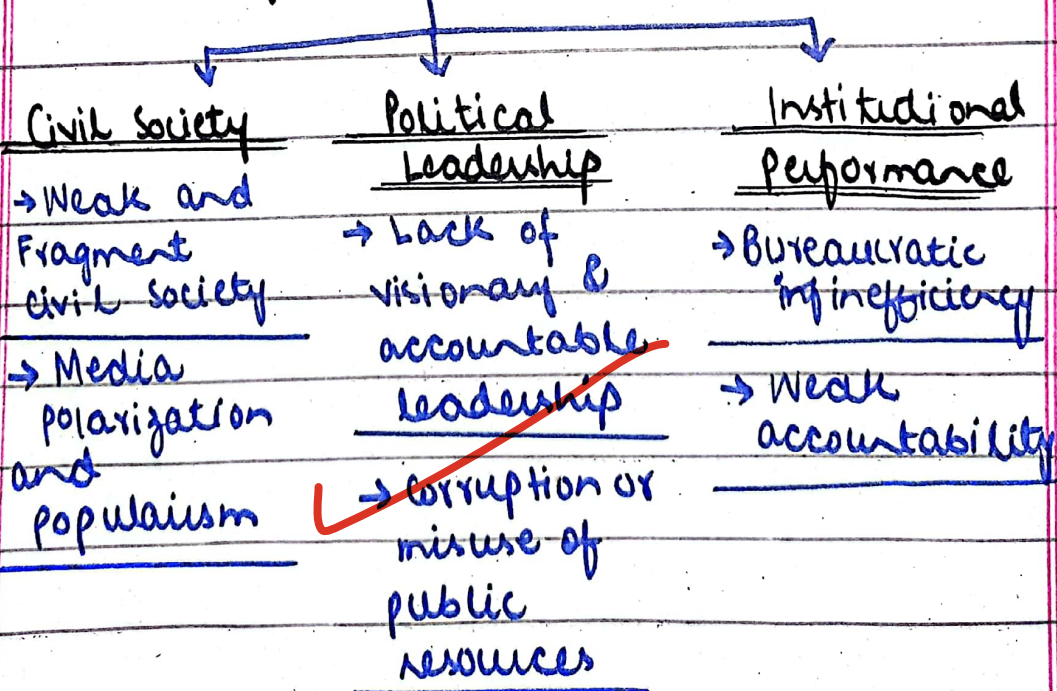 Civil Society
→ Weak and
Fragment
civil society
→ Media
polarization
and
populaism
Political
Leadership
→ Lack of
visionary &
accountable
leadership
→ corruption or
misuse of
public
resources
Institudional
Performance
→ Bureaucratic
inefficiency
→ Weak
accountability